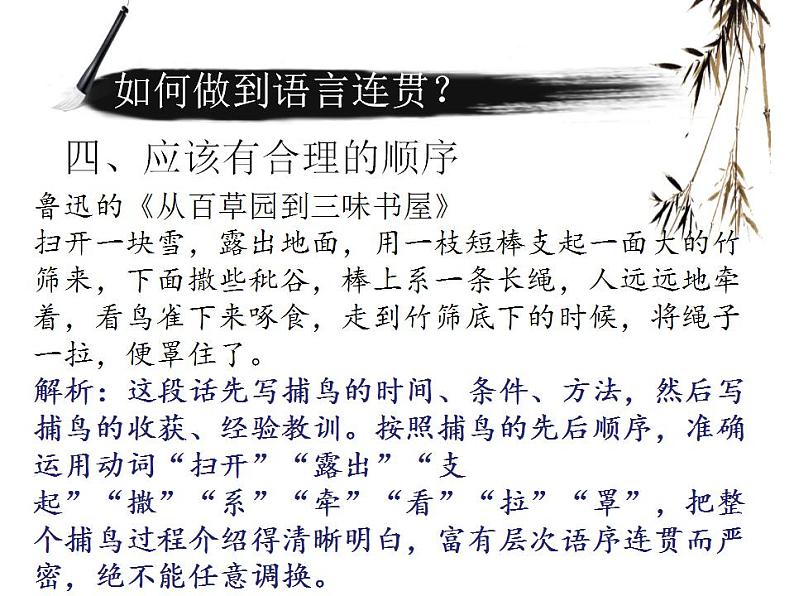 如何做到语言连贯?
四、应该有合理的顺序
鲁迅的《从百草园到三味书屋》
扫开一块雪，露出地面，用一枝短棒支起一面大的竹
筛来，下面撒些秕谷，棒上系一条长绳，人远远地牵
着，看鸟雀下来啄食，走到竹筛底下的时候，将绳子
一拉，便罩住了。
解析：这段话先写捕鸟的时间、条件、方法，然后写
捕鸟的收获、经验教训。按照捕鸟的先后顺序，准确
运用动词“扫开”“露出”“支
起”“撒”“系”“牵”“看”“拉”“罩”，把整
个捕鸟过程介绍得清晰明白，富有层次语序连贯而严
密，绝不能任意调换。